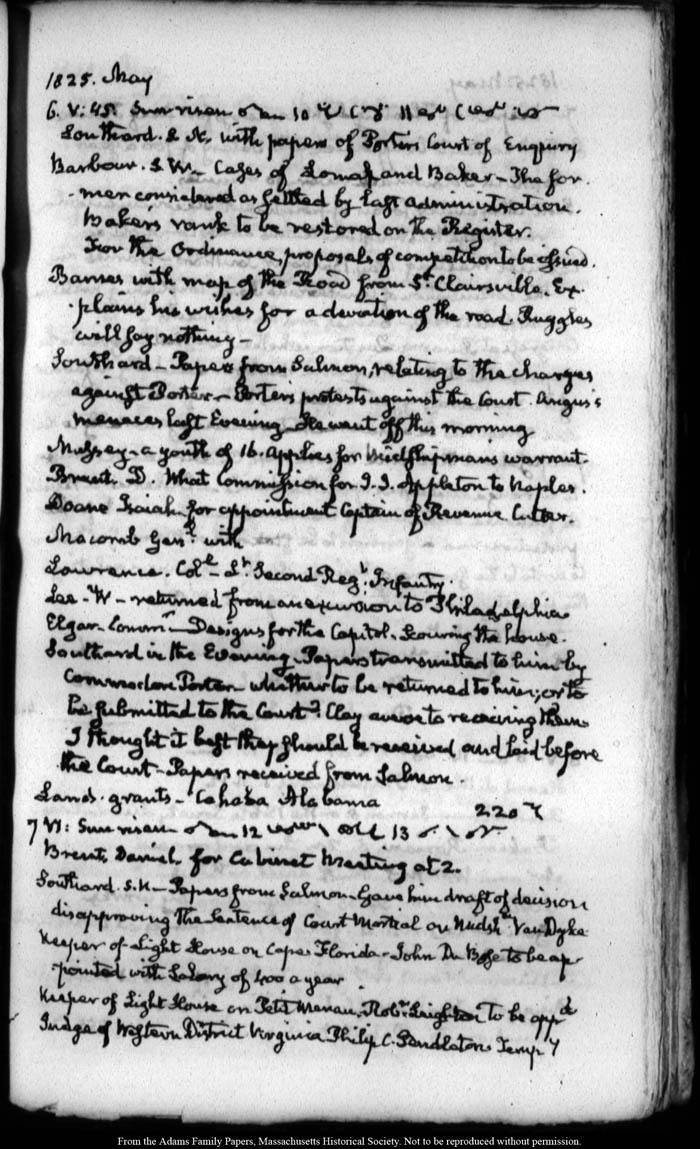 1825. May
6. V: 45. Sun risen 10
Southard. S. N. with papers of Porter's Court of Enquiry
Barbour. S. W— Cases of Lomax and Baker— The for-
mer considered as settled by last administration.
Baker's rank to be restored on the Register.
For the Ordinance, proposals of competition to be issued.
Barnes with map of the Road from St. Clairsville. Ex-
plains his wishes for a deviation of the road. Ruggles
will say nothing—
Southard— Papers from Salmon, relating to the charges
against Porter— Porter's protests against the Court.
menaces last Evening— He went off this morning
Massey— a youth of 16. applies for Midshipman's warrant.
Brent. D. What Commission for J. J. Appleton to Naples.
Doane Isaiah— for appointment Captain of Revenue Cutter.
Macomb Genl. with
Lawrence. Coll— Lt. Second Regt. Infantry.
Lee— W— returned from an excursion to Philadelphia
Elgar— Commr— Designs for the Capitol. the house.
Southard in the Evening— Papers transmitted to him by
Commodore Porter— whether to be returned to him; or to
be submitted to the Court? Clay averse to receiving them
I thought it best they should be received and laid before
the Court— Papers received from Salmon.
Lands. grants— Cahaba Alabama
220
7 VI: Sun risen 12 13
Brent, Daniel, for Cabinet Meeting at 2.
Southard. S. N— Papers from Salmon— Gave him draft of decision
disapproving the Sentence of Court Martial on Midshn. Van Dyke
Keeper of Light House on Cape Florida— John Du Bose to be ap-
pointed with Salary of 400 a year
Keeper of Light House on Petit Menan, Robt. Leighton to be appd.
Judge of Western District Virginia Philip C. Pendleton. Temp y
From the Adams Family Papers, Massachusetts Historical Society. Not to be reproduced without permission.